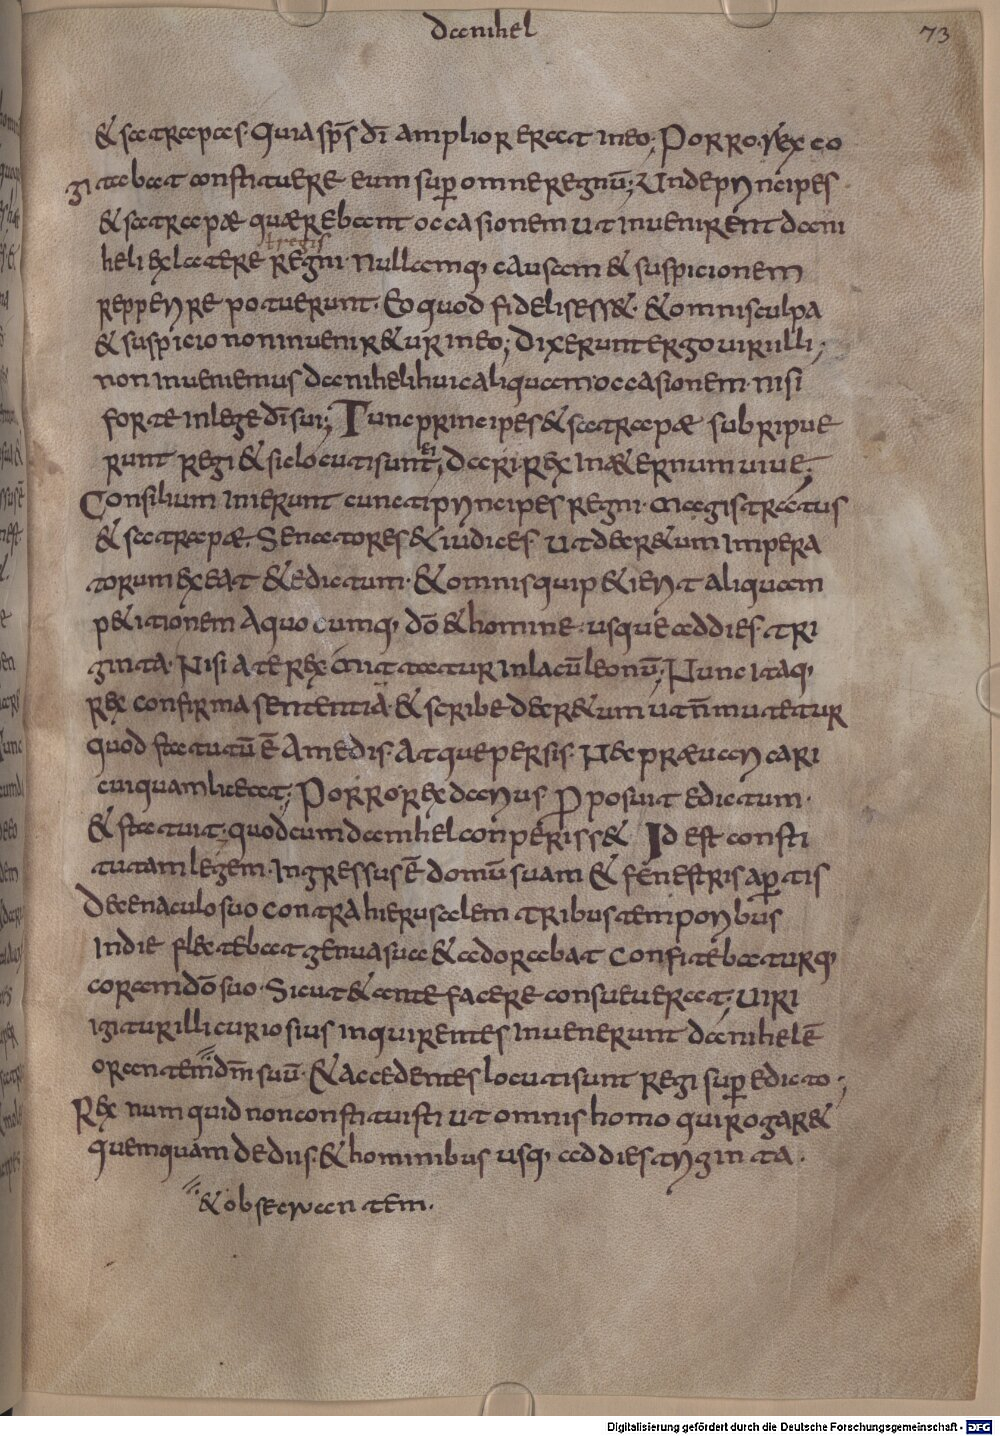 danihel
73
& satrapas· Quia sp̄s dī amplior erat in eo; Porro· rex co
gitabat constituere eum sup̄ omne regnū; Unde principes
& satrapæ quærebant occasionem ut invenirent dani
ł regis
heli ex latere regni· Nullamq; causam & suspicionem
repperire potuerunt· Eo quod fidelis ess&· & omnis culpa
& suspicio non inveniretur in eo; Dixerunt ergo viri illi;
non inveniemus daniheli huic aliquam occasionem· nisi
forte in lege dī sui; Tunc principes & satrapæ subripue
runt regi & sic locuti sunt ei; dari· rex in æternum vive;
Consilium inierunt cuncti principes regni· magistratus
& satrapæ· Senatores & iudices· ut decr&um impera
torum exeat & edictum· & omnis qui p&ierit aliquam
p&itionem a quocumq; dō & homine· usque ad dies· tri
ginta· Nisi a te rex mittatur in lacū leonū; Nunc itaq;
rex confirma sententiā· & scribe decr&um ut n̄ mutetur
quod statutū ē a medis· atque persis· Nec prævaricari
cuiquam liceat; Porro· rex darius· p̄posuit edictum·
& statuit· quod cum danihel conperiss& Id est consti
tutam legem· Ingressus ē domū suam & fenestris ap̄tis
de cenaculo suo contra hierusalem tribus temporibus
in die flectebat genua sua & adorabat confitebaturq;
coram dō suo· Sicut & ante facere consueverat; Viri
igitur illi curiosius inquirentes invenerunt danihelē
orantem dm̄ suū· & accedentes locuti sunt regi sup̄ edicto;
Rex num quid non constituisti ut omnis homo qui rogar&
quemquam de diis· & hominibus usq; ad dies triginta·
& obsecrantem·
Digitalisierung gefördert durch die Deutsche Forschungsgemeinschaft - DFG